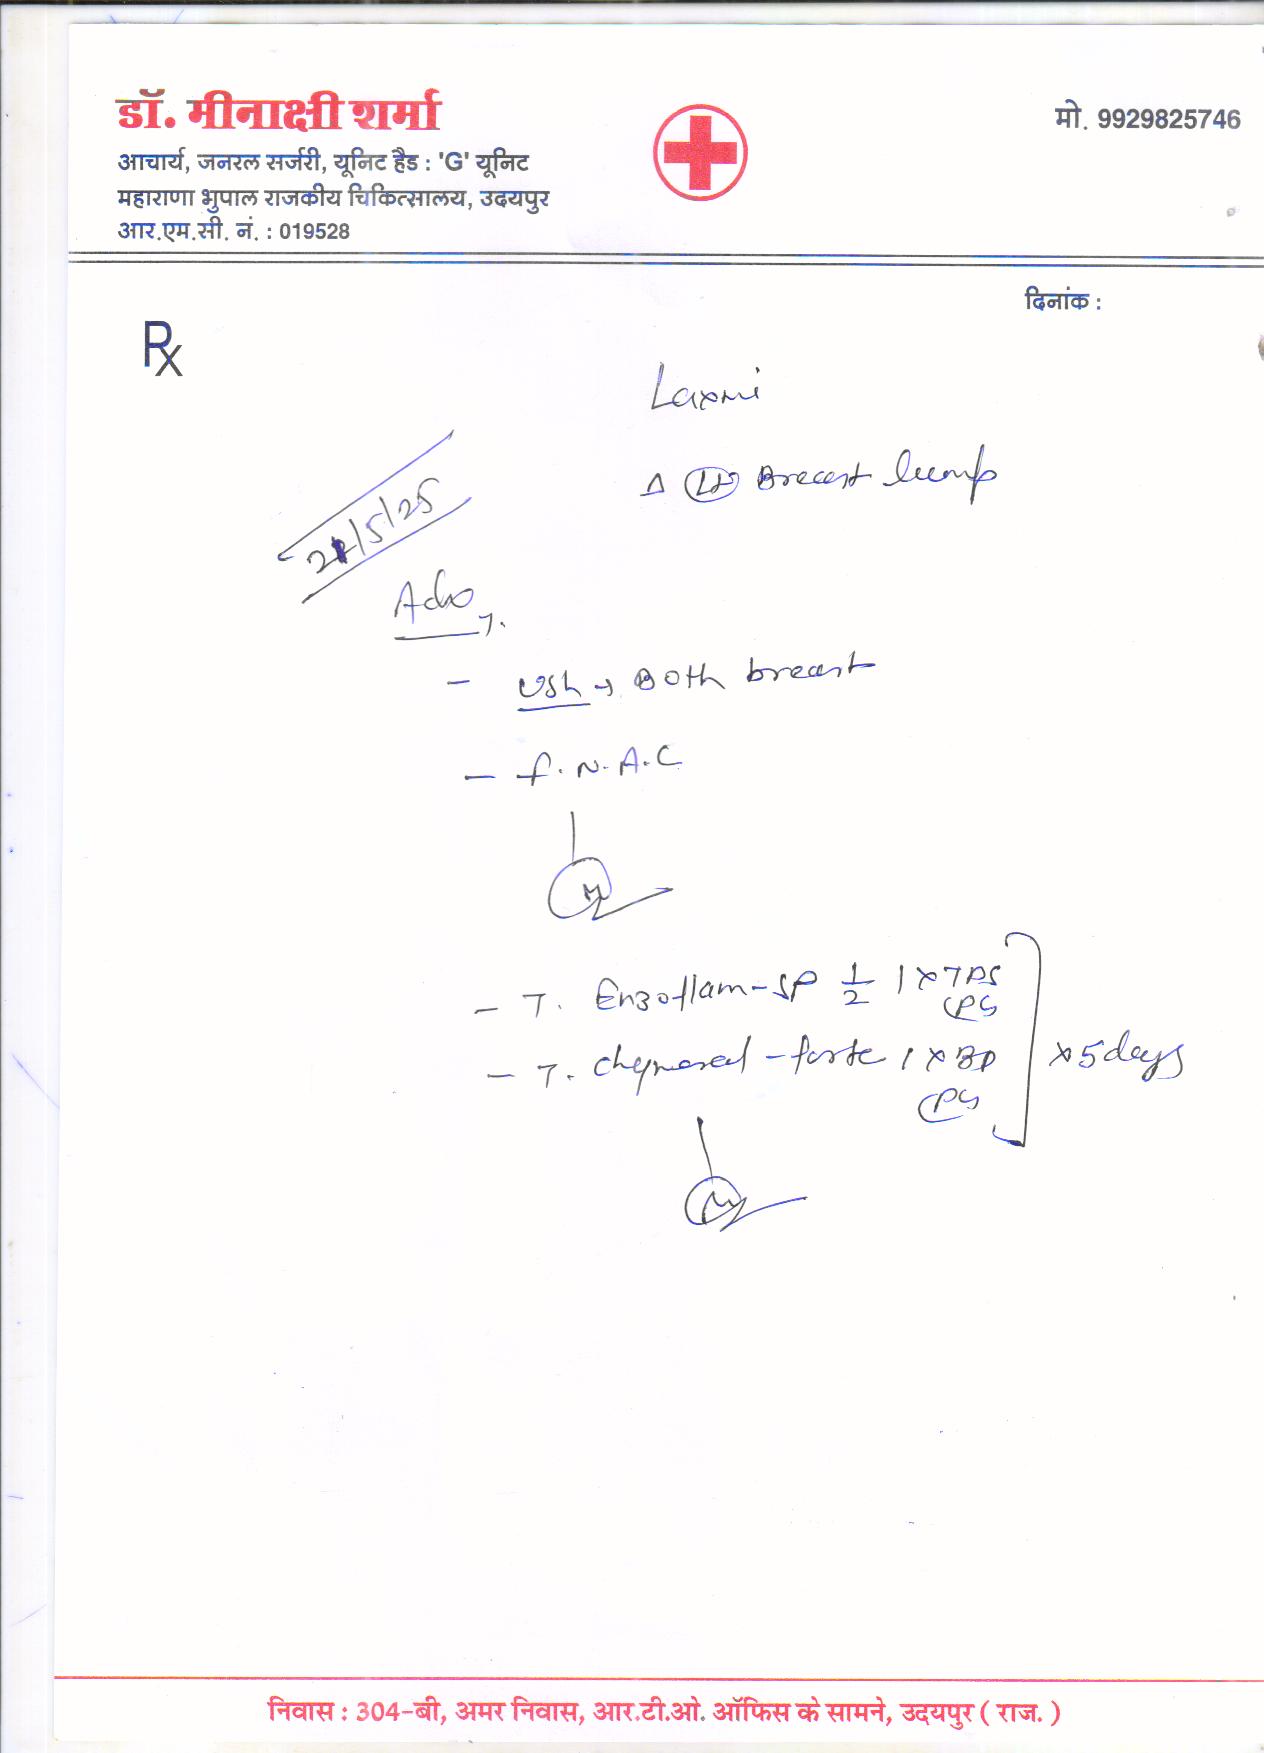 डॉ. मीनाक्षी शर्मा
आचार्य, जनरल सर्जरी, यूनिट हैड : 'G' यूनिट
महाराणा भुपाल राजकीय चिकित्सालय, उदयपुर
आर.एम.सी. नं. : 019528
मो. 9929825746
दिनांक :
Rx
Laxmi
Δ Breast lump
/5/25
Adv
- USG → Both breast
- F.N.A.C
- T. Enzoflam-SP 1/2 1 x TDS
PC
- T. Chymoral-forte 1 x BD
PC
x 5 days
निवास : 304-बी, अमर निवास, आर.टी.ओ. ऑफिस के सामने, उदयपुर ( राज. )